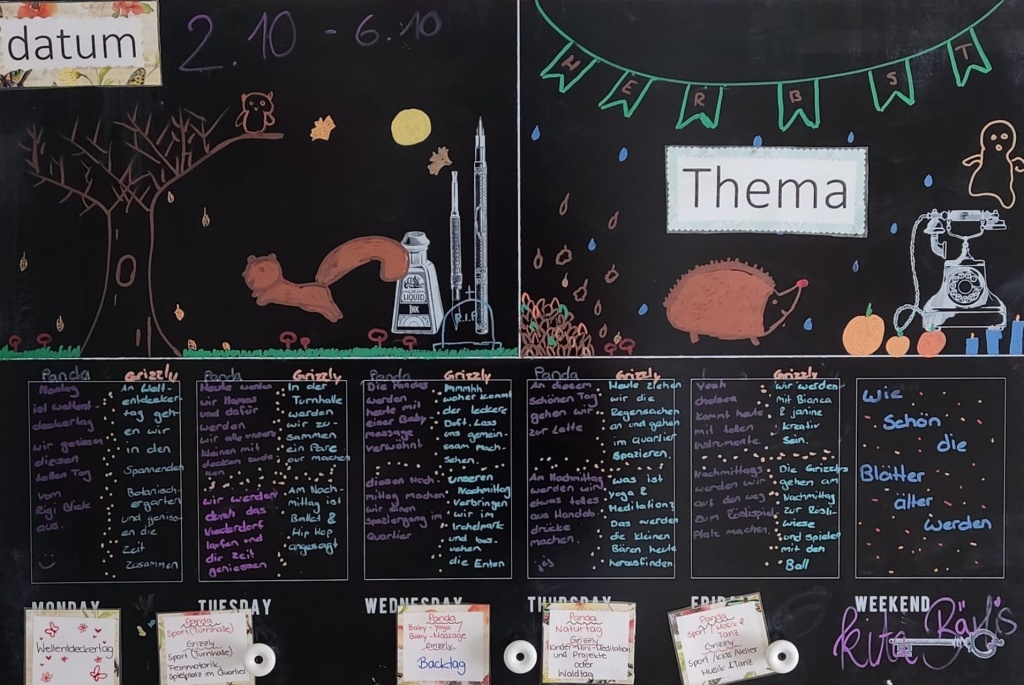 datum
2.10 - 6.10
HERBST
Thema
LIQUID
INK
R.I.P
Panda
Montag
ist weltent-
deckertag
wir geniessen
diesen
tollen Tag
vom
Rigi Blick
aus.
Grizzly
Am Welt-
entdecker-
tag geh-
en wir
in den
Spannenden
Botanisch-
ergarten
und genies-
en die
Zeit
Zusammen
Panda
Heute werden
wir Mamas
und dafür
werden
wir alle unsere
kleinen mit
decken
wir werden
durch das
Niederdorf
laufen und
die Zeit
geniessen
Grizzly
In der
Turnhalle
werden
wir zu-
sammen
ein Par-
our machen
Am Nach-
mittag ist
Ballet &
Hip Hop
angesagt
Panda
Die Pandas
werden
heute mit
einer Baby
massage
verwöhnt
diesen Nach-
mittag machen
wir einen
Spaziergang im
Quartier
Grizzly
Mmmhh
woher kommt
der leckere
Duft. Lass
uns gemein-
sam nach-
sehen.
unseren
Nachmittag
verbringen
wir im
Irchelpark
und bes-
uchen
die Enten
Panda
An diesem
Schönen Tag
gehen wir
zur Latte
Am Nachmittag
werden wir
etwas tolles
aus Hand
drücke
machen
Grizzly
Heute ziehen
wir die
Regensachen
an und gehen
im quartier
Spazieren.
was ist
yoga &
Meditation?
Das werden
die kleinen
Bären heute
herausfinden
yeah
kommt heute
mit tollen
Instrumente.
Nachmittags
werden wir
auf den weg
zum Röslispiel
Platz machen.
Grizzly
wir werden
mit Bianca
& janine
kreativ
Sein.
Die Grizzlys
gehen am
Nachmittag
zur Rösli-
wiese
und spielen
mit den
Ball
Wie
Schön
die
Blätter
älter
werden
MONDAY
TUESDAY
WEDNESDAY
THURSDAY
FRIDAY
WEEKEND
Weltentdeckertag
Panda
Sport (Turnhalle)
Grizzly
Sport (Turnhalle)
Feinmotorik
Spielplatz im Quartier
Panda
Baby-Yoga/
Baby-Massage
Grizzly
Backtag
Panda
Naturtag
Grizzly
Kinder-Mini-Meditation
und Projekte
oder
Waldtag
Panda
Sport/Musik &
Tanz
Grizzly
Sport/Kids Atelier
Musik & Tanz
kita Bärlis